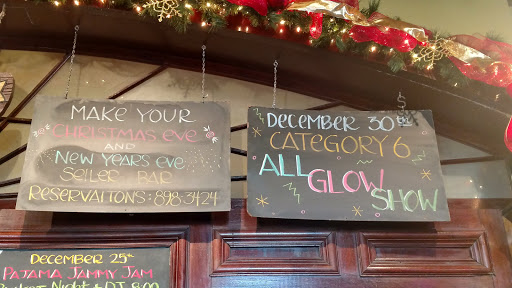 MAKE YOUR
CHRISTMAS EVE
AND
NEW YEARS EVE
SEILER BAR
RESERVAITONS: 898-3424
DECEMBER 30th
CATEGORY 6
ALL
GLOW
SHOW
DECEMBER 25th
PAJAMA JAMMY JAM
Night & DJ 8:00